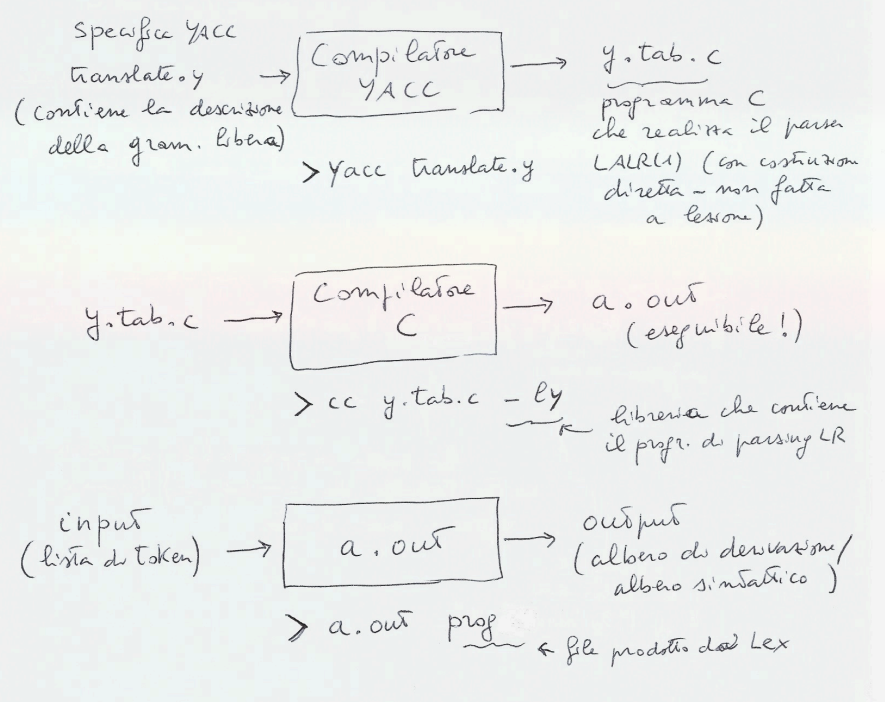 specifica YACC
translate.y → Compilatore YACC → y.tab.c
(contiene la descrizione
della gram. libera)
programma C
che realizza il parser
LALR(1) (con costruzione
diretta - non fatta
a lezione)
> Yacc translate.y
y.tab.c → Compilatore C → a.out
(eseguibile!)
> cc y.tab.c -ly ← libreria che contiene
il progr. di parsing LR
input
(lista di token) → a.out → output
(albero di derivazione/
albero sintattico)
> a.out prog ← file prodotto da Lex